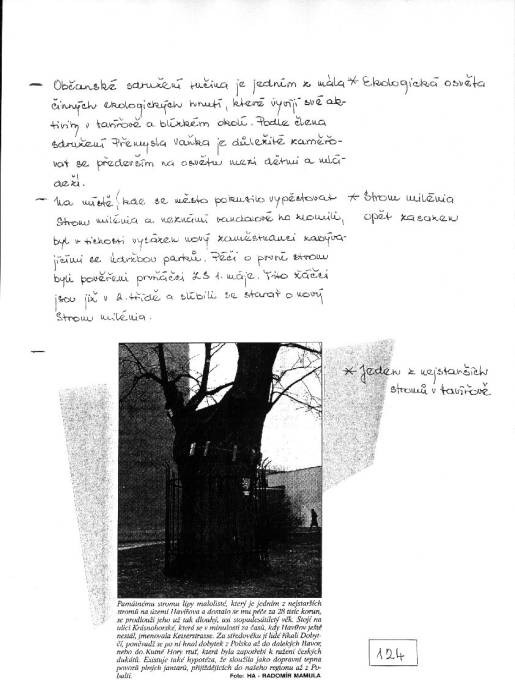 – Občanské sdružení tučína je jedním z mála
* Ekologická osvěta
činných ekologických hnutí, které vyvíjí své ak-
tivity v Havířově a blízkém okolí. Podle člena
sdružení Přemysla Vaňka je důležité zaměřo-
vat se především na osvětu mezi dětmi a mlá-
deží.
– Na místě, kde se město pokusilo vypěstovat
* Strom milénia
Strom milénia a neznámí vandalové ho zlomili,
opět zasazen
byl v tichosti vysazen nový zaměstnanci zabýva-
jícími se údržbou parků. Péčí o první strom
byli pověřeni prvňáčci ZŠ 1. máje. Tito žáčci
jsou již v 2. třídě a slíbili se starat o nový
Strom milénia.
–
* Jeden z nejstarších
stromů v Havířově
Památnému stromu lípy malolisté, který je jedním z nejstarších
stromů na území Havířova a dostalo se mu péče za 28 tisíc korun,
se prodlouží jeho už tak dlouhý, asi stopadesátiletý věk. Stojí na
ulici Krásnohorské, která se v minulosti za časů, kdy Havířov ještě
nestál, jmenovala Keiserstrasse. Za středověku jí lidé říkali Dobyt-
čí, poněvadž se po ní hnal dobytek z Polska až do dalekých Bavor,
nebo do Kutné Hory ruď, která byla zapotřebí k ražení českých
dukátů. Existuje také hypotéza, že sloužila jako dopravní tepna
povozů plných jantarů, přijíždějících do našeho regionu až z Po-
baltí.
Foto: HA - RADOMÍR MAMULA
124